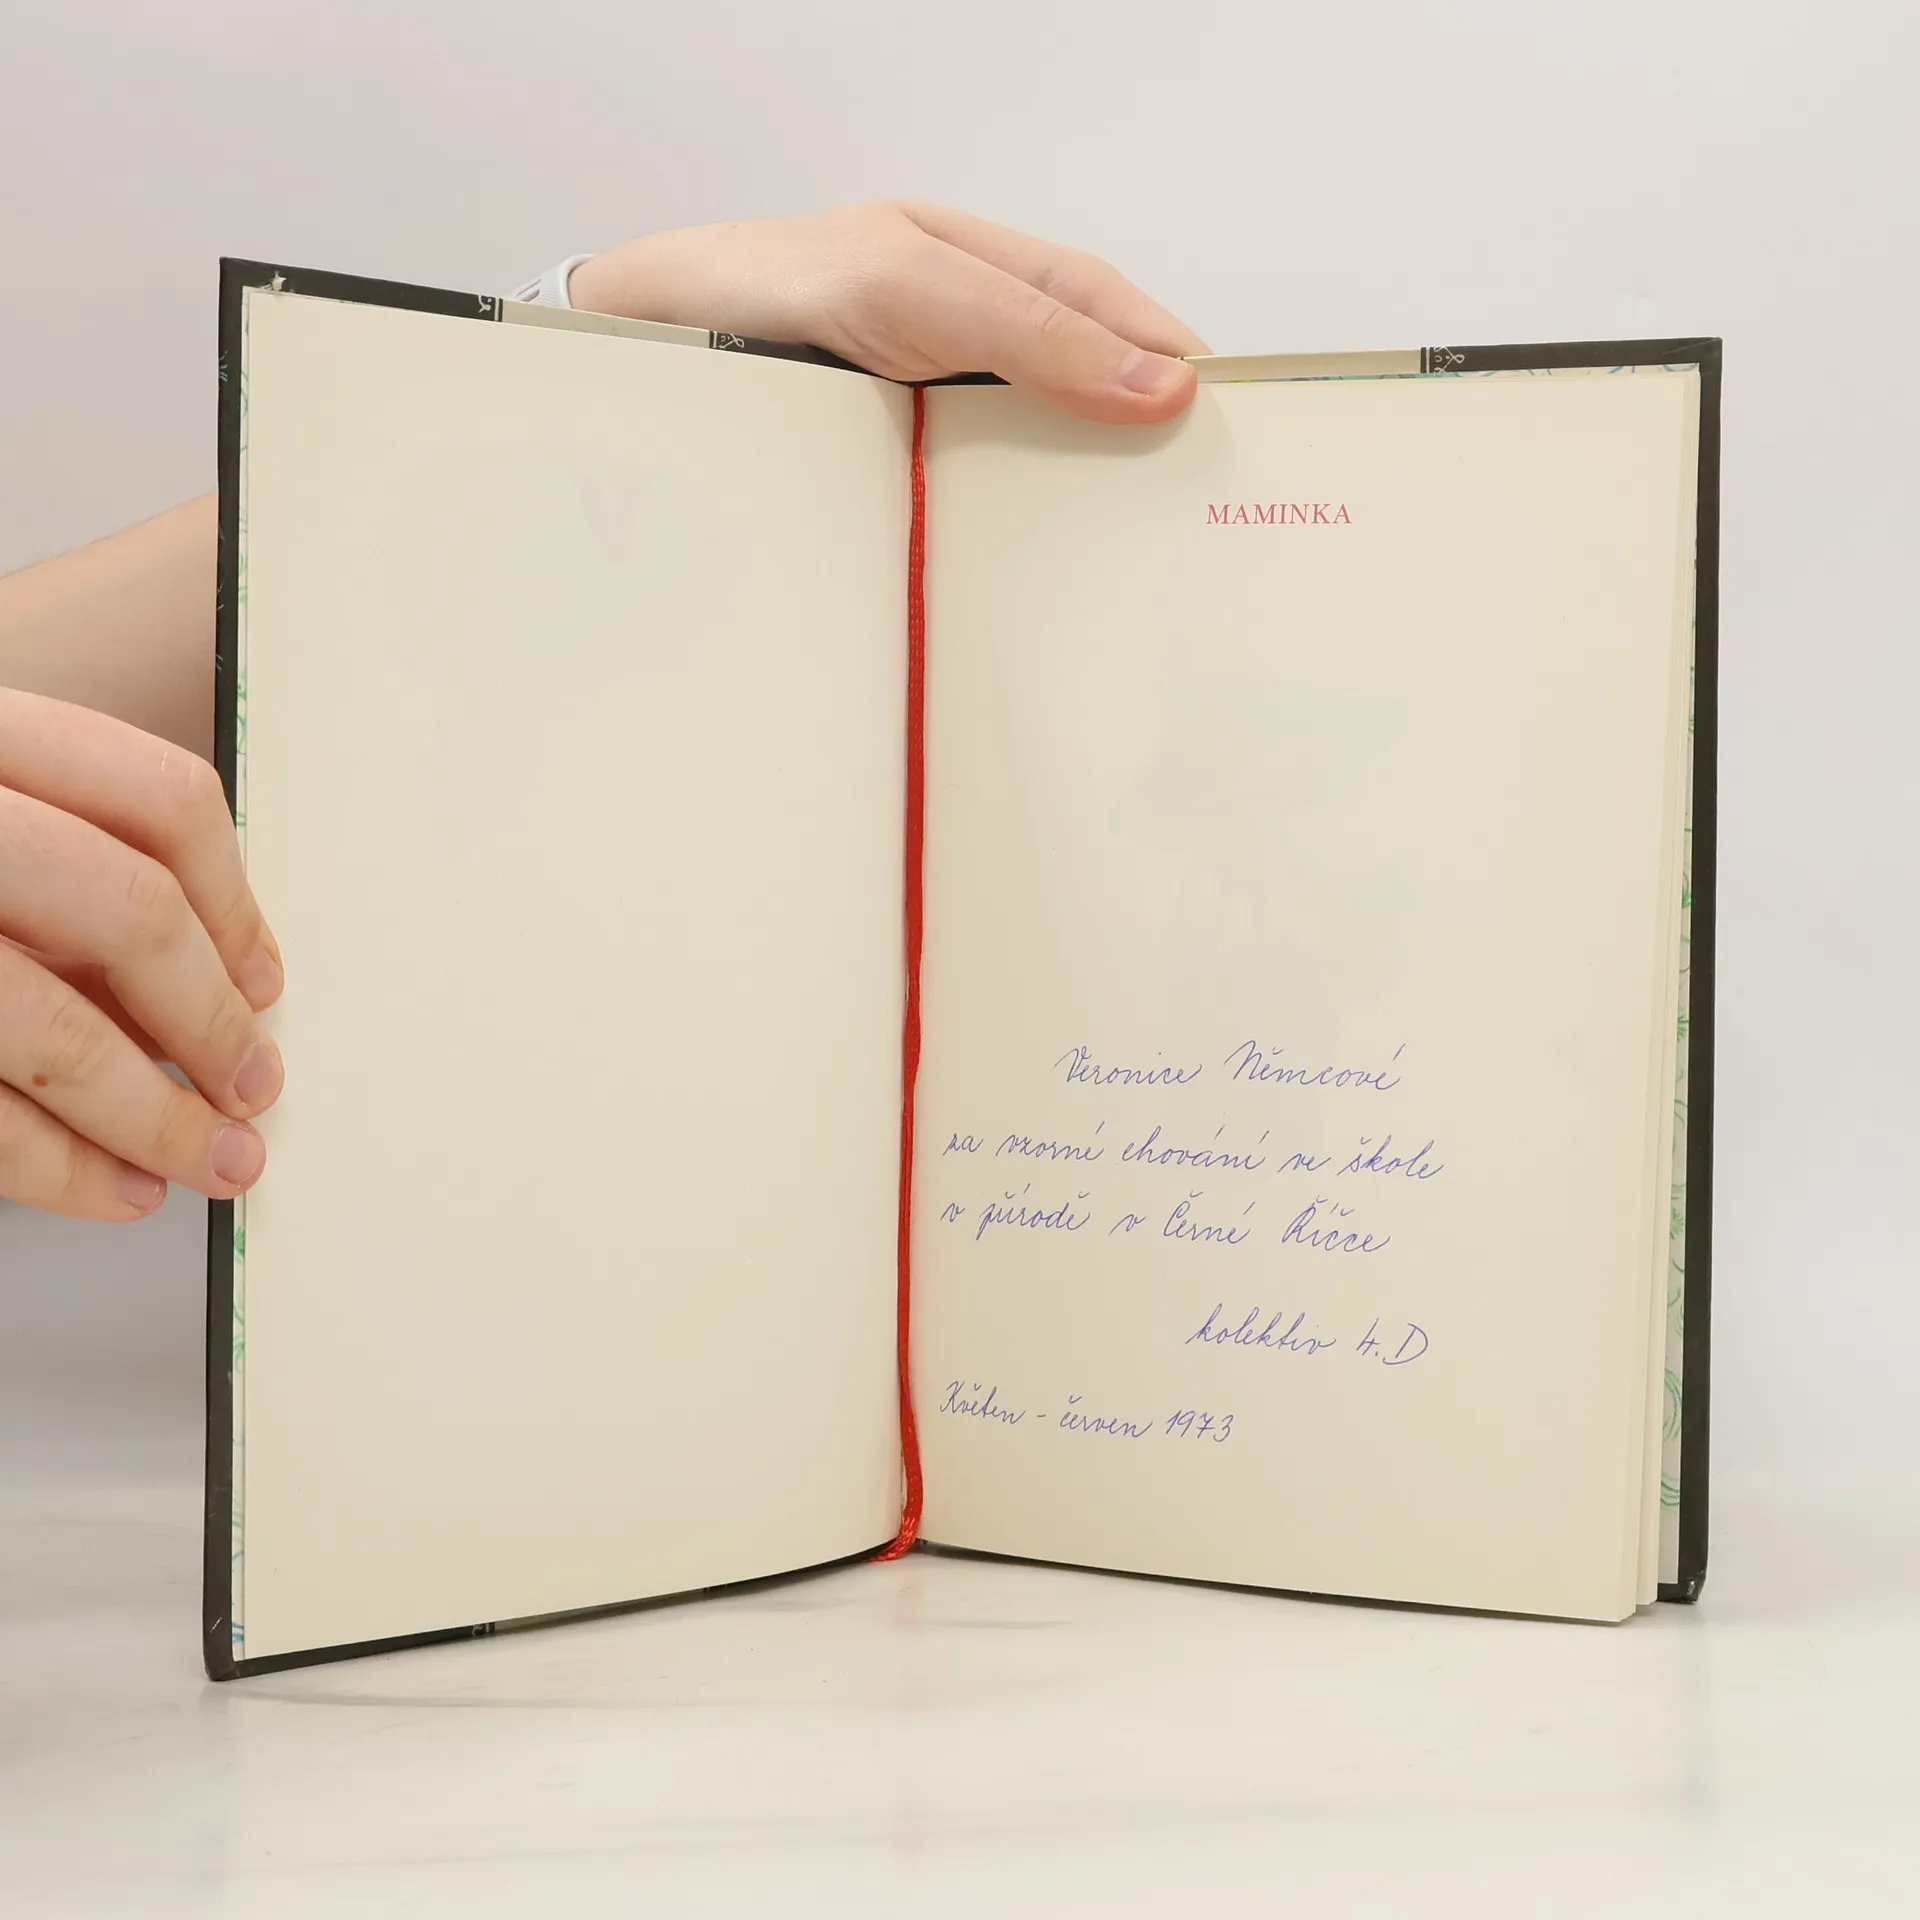 MAMINKA
Veronice Němcové
za vzorné chování ve škole
v přírodě v Černé Říčce
kolektiv 4. D
Květen - červen 1973